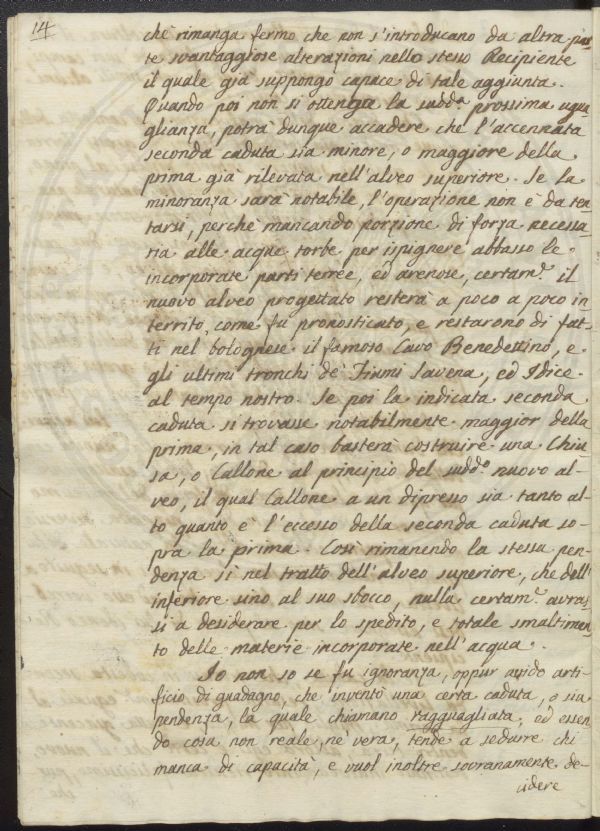 14
chè rimanga fermo che non s'introducano da altra par
te svantaggiose alterazioni nello stesso Recipiente
il quale già suppongo capace di tale aggiunta.
Quando poi non si ottenga la sudd.ª prossima ugua
glianza, potrà dunque accadere che l'accennata
seconda caduta sia minore, o maggiore della
prima già rilevata nell'alveo superiore. Se la
minoranza sarà notabile, l'operazione non è da ten
tarsi, perchè mancando porzione di forza necessa
ria alle acque torbe per ispignere abbasso le
incorporate parti terree, ed arenose, certam.e il
nuovo alveo progettato resterà a poco a poco in
territo, come fu pronosticato, e restarono di fat
ti nel bolognese il famoso Cavo Benedettino, e
gli ultimi tronchi de' Fiumi Savena, ed Idice
al tempo nostro. Se poi la indicata seconda
caduta si trovasse notabilmente maggior della
prima, in tal caso basterà costruire una Chiu
sa, o Callone al principio del sudd.º nuovo al
veo, il qual Callone a un dipresso sia tanto al
to quanto è l'eccesso della seconda caduta so
pra la prima. Così rimanendo la stessa pen
denza sì nel tratto dell'alveo superiore, che dell'
inferiore sino al suo sbocco, nulla certam.e avras
si a desiderare per lo spedito, e totale smaltimen
to delle materie incorporate nell'acqua.
Io non so se fu ignoranza, oppur avido arti
ficio di guadagno, che inventò una certa caduta, o sia
pendenza, la quale chiamano ragguagliata, ed essen
do cosa non reale, nè vera, tende a sedurre chi
manca di capacità, e vuol inoltre sovranamente de
cidere